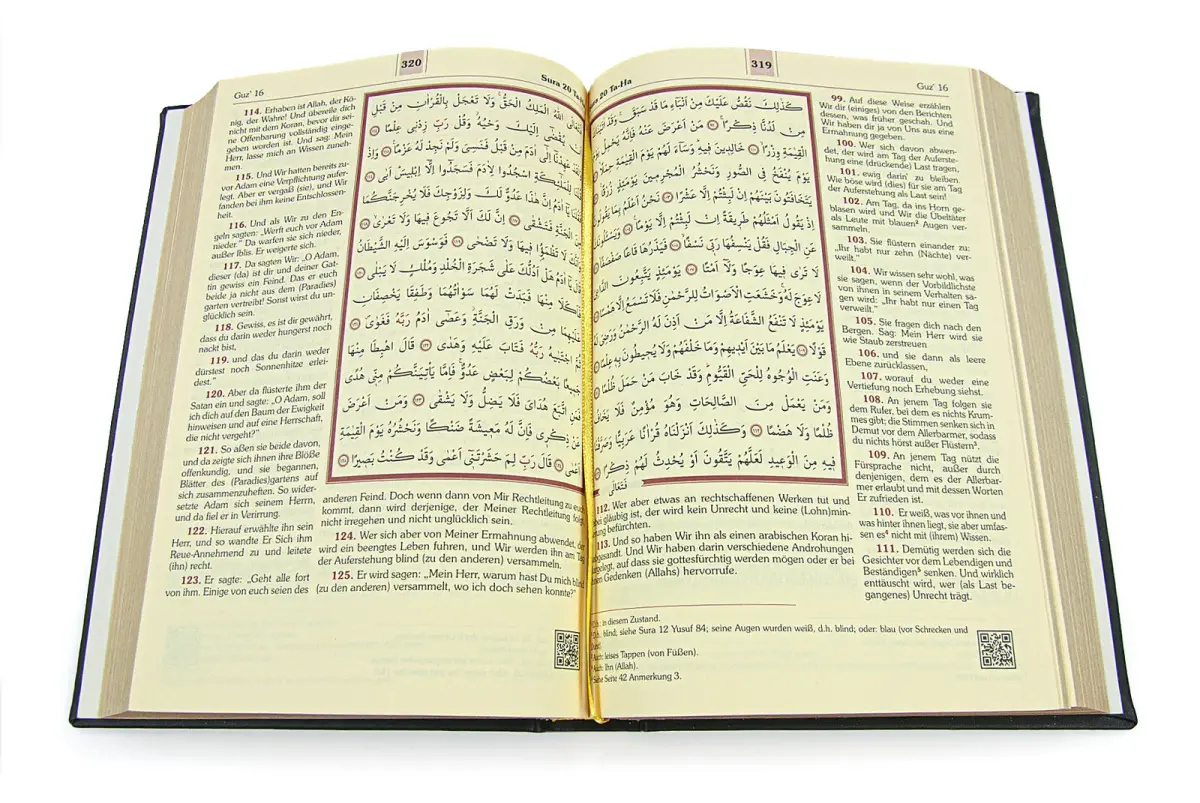 319
Guz' 16
20 Ta-Ha
99. Auf diese Weise erzählen
Wir dir (einiges) von den Berichten
dessen, was früher geschah. Und
Wir haben dir ja von Uns aus eine
Ermahnung gegeben.
100. Wer sich davon abwen-
det, der wird am Tag der Auferste-
hung eine (drückende) Last tragen,
101. ewig darin¹ zu bleiben.
Wie böse wird (dies) für sie am Tag
der Auferstehung als Last sein!
102. Am Tag, da ins Horn ge-
blasen wird und Wir die Übeltäter
als Leute mit blauen² Augen ver-
sammeln,
103. Sie flüstern einander zu:
„Ihr habt nur zehn (Nächte) ver-
weilt."
104. Wir wissen sehr wohl, was
sie sagen, wenn der Vorbildlichste
von ihnen in seinem Verhalten sa-
gen wird: „Ihr habt nur einen Tag
verweilt."
105. Sie fragen dich nach den
Bergen. Sag: Mein Herr wird sie
wie Staub zerstreuen
106. und sie dann als leere
Ebene zurücklassen,
107. worauf du weder eine
Vertiefung noch Erhebung siehst.
108. An jenem Tag folgen sie
dem Rufer, bei dem es nichts Krum-
mes gibt; die Stimmen senken sich in
Demut vor dem Allerbarmer, sodass
du nichts hörst außer Flüstern³.
109. An jenem Tag nützt die
Fürsprache nicht, außer durch
denjenigen, dem es der Allerbar-
mer erlaubt und mit dessen Worten
Er zufrieden ist.
110. Er weiß, was vor ihnen und
was hinter ihnen liegt, sie aber umfas-
sen es⁴ nicht mit (ihrem) Wissen.
111. Demütig werden sich die
Gesichter vor dem Lebendigen und
Beständigen⁵ senken. Und wirklich
enttäuscht wird, wer (als Last be-
gangenes) Unrecht trägt.
كَذٰلِكَ نَقُصُّ عَلَيْكَ مِنْ اَنْبَٓاءِ مَا قَدْ سَبَقَ وَقَدْ
مِنْ لَدُنَّا ذِكْرًا مَنْ اَعْرَضَ عَنْهُ فَاِنَّهُ يَحْمِلُ يَوْمَ
الْقِيٰمَةِ وِزْرًا خَالِدِينَ فِيهِ وَسَٓاءَ لَهُمْ يَوْمَ الْقِيٰمَةِ حِمْلًا
يَوْمَ يُنْفَخُ فِي الصُّورِ وَنَحْشُرُ الْمُجْرِمِينَ يَوْمَئِذٍ زُرْقًا
يَتَخَافَتُونَ بَيْنَهُمْ اِنْ لَبِثْتُمْ اِلَّا عَشْرًا نَحْنُ اَعْلَمُ بِمَا يَقُولُونَ
اِذْ يَقُولُ اَمْثَلُهُمْ طَرِيقَةً اِنْ لَبِثْتُمْ اِلَّا يَوْمًا وَيَسْـَٔلُونَكَ
عَنِ الْجِبَالِ فَقُلْ يَنْسِفُهَا رَبِّي نَسْفًا فَيَذَرُهَا قَاعًا صَفْصَفًا
لَا تَرٰى فِيهَا عِوَجًا وَلَٓا اَمْتًا يَوْمَئِذٍ يَتَّبِعُونَ الدَّاعِيَ
لَا عِوَجَ لَهُ وَخَشَعَتِ الْاَصْوَاتُ لِلرَّحْمٰنِ فَلَا تَسْمَعُ اِلَّا هَمْسًا
يَوْمَئِذٍ لَا تَنْفَعُ الشَّفَاعَةُ اِلَّا مَنْ اَذِنَ لَهُ الرَّحْمٰنُ وَرَضِيَ لَهُ
قَوْلًا يَعْلَمُ مَا بَيْنَ اَيْدِيهِمْ وَمَا خَلْفَهُمْ وَلَا يُحِيطُونَ بِهِ عِلْمًا
وَعَنَتِ الْوُجُوهُ لِلْحَيِّ الْقَيُّومِ وَقَدْ خَابَ مَنْ حَمَلَ ظُلْمًا
وَمَنْ يَعْمَلْ مِنَ الصَّالِحَاتِ وَهُوَ مُؤْمِنٌ فَلَا يَخَافُ
ظُلْمًا وَلَا هَضْمًا وَكَذٰلِكَ اَنْزَلْنَاهُ قُرْاٰنًا عَرَبِيًّا وَصَرَّفْنَا
فِيهِ مِنَ الْوَعِيدِ لَعَلَّهُمْ يَتَّقُونَ اَوْ يُحْدِثُ لَهُمْ ذِكْرًا
فَتَعَالَى
112. Wer aber etwas an rechtschaffenen Werken tut und
gläubig ist, der wird kein Unrecht und keine (Lohn)min-
befürchten.
113. Und so haben Wir ihn als einen arabischen Koran hi-
Und Wir haben darin verschiedene Androhungen
auf dass sie gottesfürchtig werden mögen oder er bei
Gedenken (Allahs) hervorrufe.
in diesem Zustand.
blind; siehe Sura 12 Yusuf 84; seine Augen wurden weiß, d.h. blind; oder: blau (vor Schrecken und
Auch: leises Tappen (von Füßen).
Auch: Ihn (Allah).
Siehe Seite 42 Anmerkung 3.
320
Guz' 16
Sura 20
114. Erhaben ist Allah, der Kö-
nig, der Wahre! Und übereile dich
nicht mit dem Koran, bevor dir sei-
ne Offenbarung vollständig einge-
geben worden ist. Und sag: Mein
Herr, lasse mich an Wissen zuneh-
men.
115. Und Wir hatten bereits zu-
vor Adam eine Verpflichtung aufer-
legt. Aber er vergaß (sie), und Wir
fanden bei ihm keine Entschlossen-
heit.
116. Und als Wir zu den En-
geln sagten: „Werft euch vor Adam
nieder." Da warfen sie sich nieder,
außer Iblis. Er weigerte sich.
117. Da sagten Wir: „O Adam,
dieser (da) ist dir und deiner Gat-
tin gewiss ein Feind. Das er euch
beide ja nicht aus dem (Paradies)
garten vertreibt! Sonst wirst du un-
glücklich sein.
118. Gewiss, es ist dir gewährt,
dass du darin weder hungerst noch
nackt bist,
119. und das du darin weder
dürstest noch Sonnenhitze erlei-
dest."
120. Aber da flüsterte ihm der
Satan ein und sagte: „O Adam, soll
ich dich auf den Baum der Ewigkeit
hinweisen und auf eine Herrschaft,
die nicht vergeht?"
121. So aßen sie beide davon,
und da zeigte sich ihnen ihre Blöße
offenkundig, und sie begannen,
Blätter des (Paradies)gartens auf
sich zusammenzuheften. So wider-
setzte Adam sich seinem Herrn,
und da fiel er in Verirrung.
122. Hierauf erwählte ihn sein
Herr, und so wandte Er Sich ihm
Reue-Annehmend zu und leitete
(ihn) recht.
123. Er sagte: „Geht alle fort
von ihm. Einige von euch seien des
فَتَعَالَى اللّٰهُ الْمَلِكُ الْحَقُّ وَلَا تَعْجَلْ بِالْقُرْاٰنِ مِنْ قَبْلِ
يُقْضٰٓى اِلَيْكَ وَحْيُهُ وَقُلْ رَبِّ زِدْنِي عِلْمًا
عَهِدْنَٓا اِلٰٓى اٰدَمَ مِنْ قَبْلُ فَنَسِيَ وَلَمْ نَجِدْ لَهُ عَزْمًا وَاِذْ
قُلْنَا لِلْمَلٰٓئِكَةِ اسْجُدُوا لِاٰدَمَ فَسَجَدُٓوا اِلَّٓا اِبْلِيسَ اَبٰى
يَٓا اٰدَمُ اِنَّ هٰذَا عَدُوٌّ لَكَ وَلِزَوْجِكَ فَلَا يُخْرِجَنَّكُمَا
مِنَ الْجَنَّةِ فَتَشْقٰى اِنَّ لَكَ اَلَّا تَجُوعَ فِيهَا وَلَا تَعْرٰى
لَا تَظْمَؤُا فِيهَا وَلَا تَضْحٰى فَوَسْوَسَ اِلَيْهِ الشَّيْطَانُ
قَالَ يَٓا اٰدَمُ هَلْ اَدُلُّكَ عَلٰى شَجَرَةِ الْخُلْدِ وَمُلْكٍ لَا يَبْلٰى
فَاَكَلَا مِنْهَا فَبَدَتْ لَهُمَا سَوْاٰتُهُمَا وَطَفِقَا يَخْصِفَانِ
عَلَيْهِمَا مِنْ وَرَقِ الْجَنَّةِ وَعَصٰٓى اٰدَمُ رَبَّهُ فَغَوٰى
اجْتَبٰيهُ رَبُّهُ فَتَابَ عَلَيْهِ وَهَدٰى قَالَ اهْبِطَا مِنْهَا
جَمِيعًا بَعْضُكُمْ لِبَعْضٍ عَدُوٌّ فَاِمَّا يَأْتِيَنَّكُمْ مِنِّي هُدًى
فَمَنِ اتَّبَعَ هُدَايَ فَلَا يَضِلُّ وَلَا يَشْقٰى وَمَنْ اَعْرَضَ
عَنْ ذِكْرِي فَاِنَّ لَهُ مَعِيشَةً ضَنْكًا وَنَحْشُرُهُ يَوْمَ الْقِيٰمَةِ
اَعْمٰى قَالَ رَبِّ لِمَ حَشَرْتَنِٓي اَعْمٰى وَقَدْ كُنْتُ بَصِيرًا
anderen Feind. Doch wenn dann von Mir Rechtleitung zu euch
kommt, dann wird derjenige, der Meiner Rechtleitung folgt,
nicht irregehen und nicht unglücklich sein.
124. Wer sich aber von Meiner Ermahnung abwendet, der
wird ein beengtes Leben fuhren, und Wir werden ihn am Tag
der Auferstehung blind (zu den anderen) versammeln.
125. Er wird sagen: „Mein Herr, warum hast Du mich blind
(zu den anderen) versammelt, wo ich doch sehen konnte?"